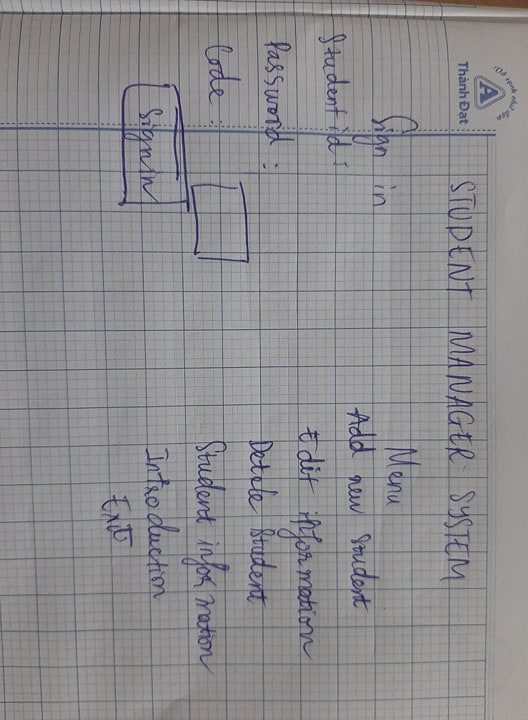 Dù sạch chữ đẹp
A
Thành Đạt
STUDENT MANAGER SYSTEM
Sign in
Student id :
Password :
Code :
Sign in
Menu
Add new student
Edit information
Detele Student
Student information
Introduction
Exit